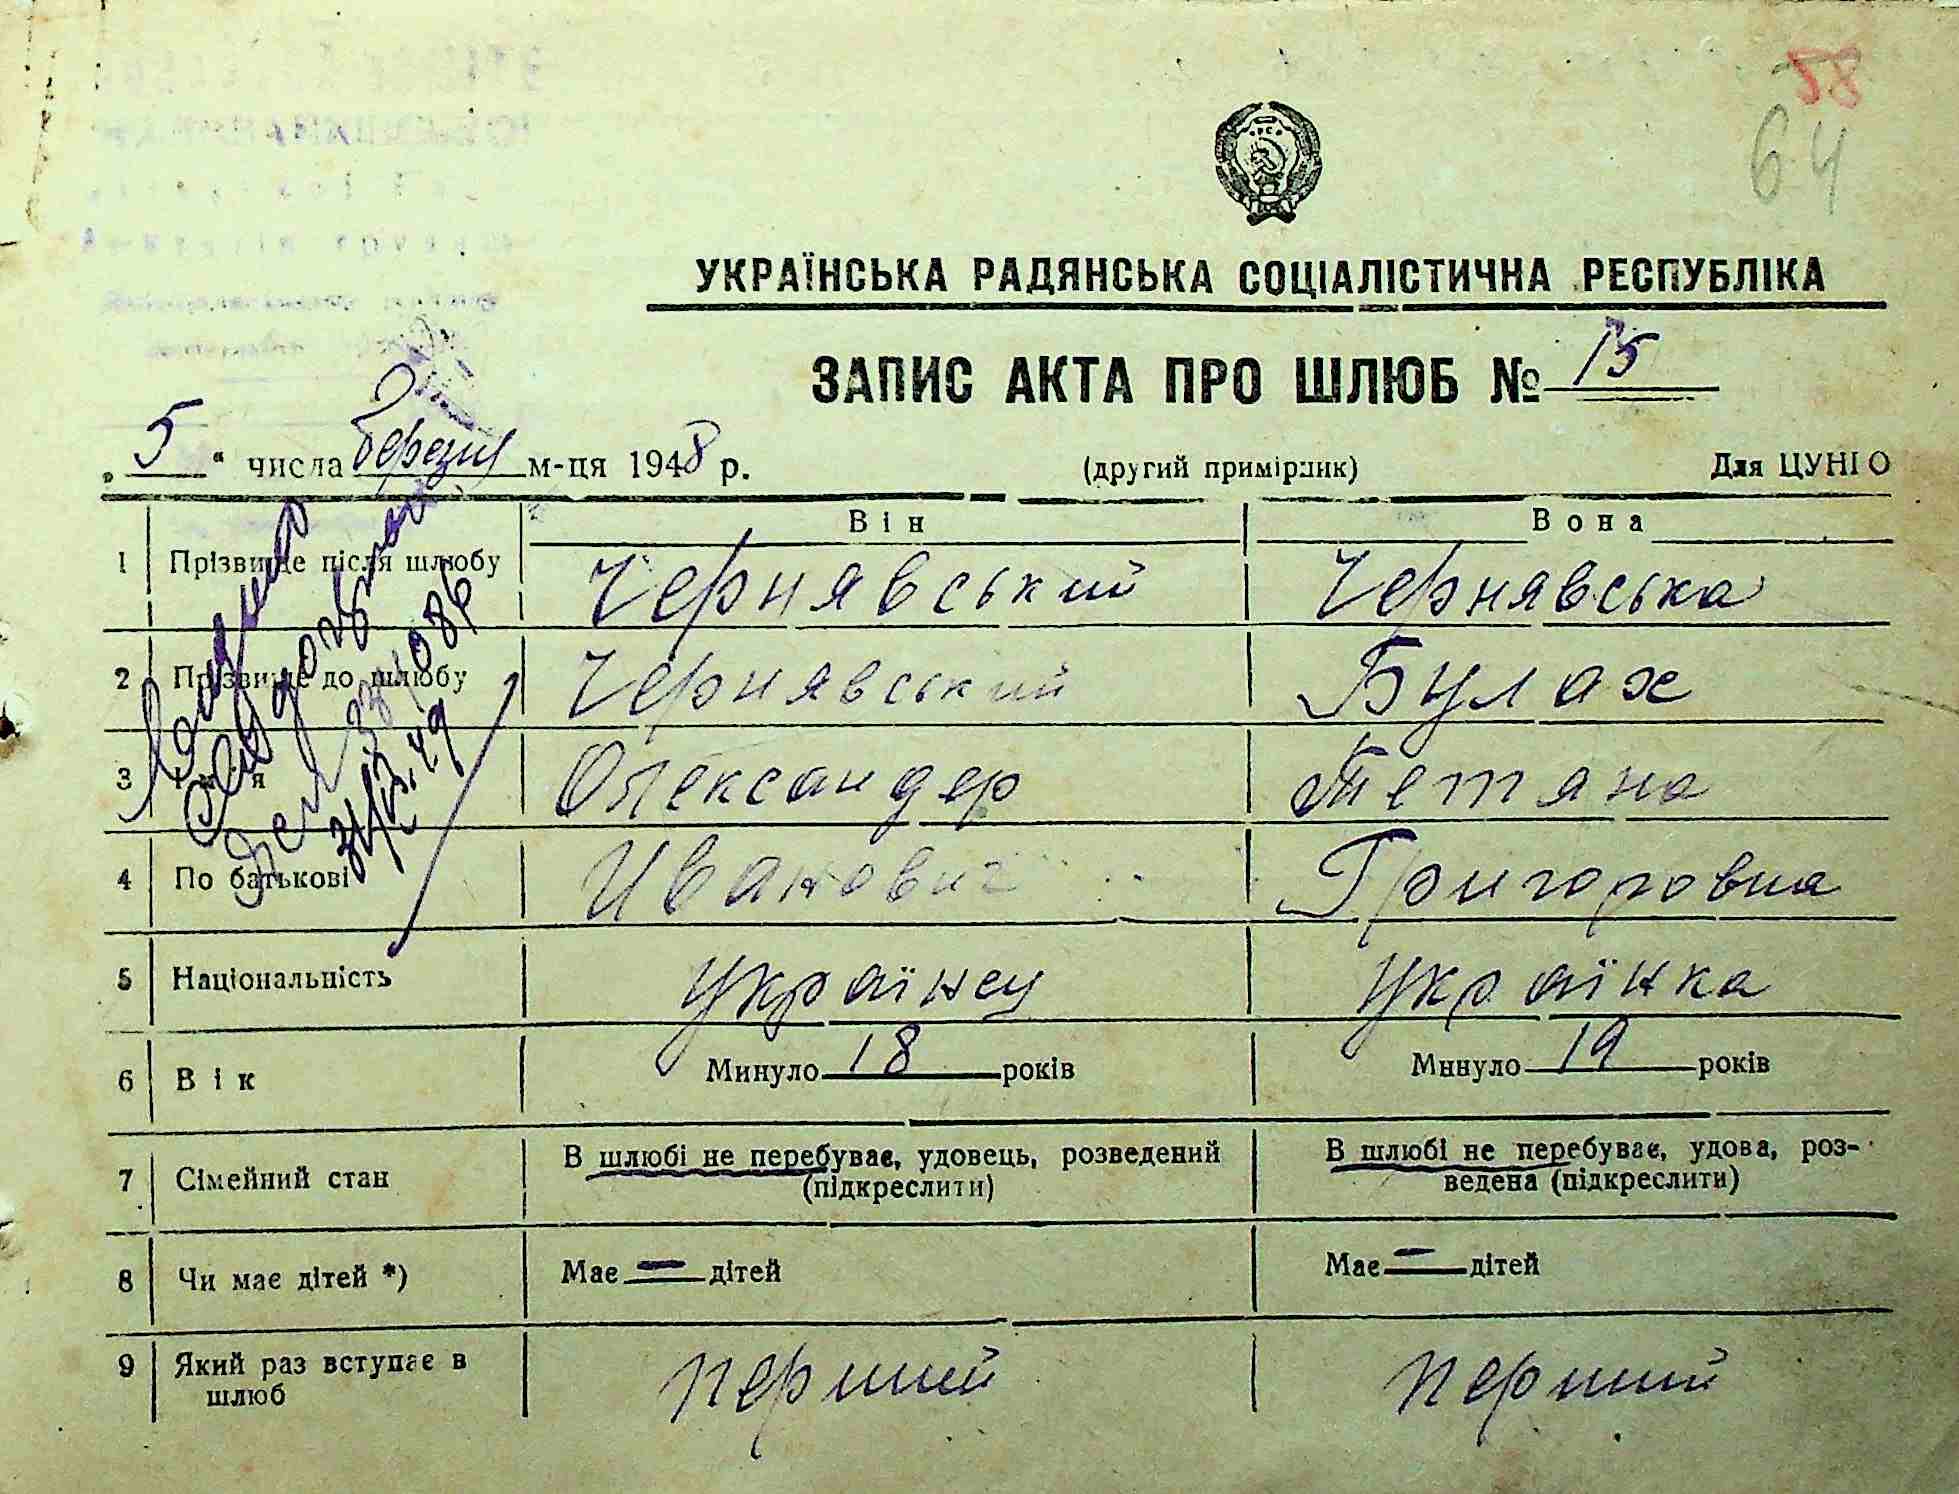 58
64
УКРАЇНСЬКА РАДЯНСЬКА СОЦІАЛІСТИЧНА РЕСПУБЛІКА
ЗАПИС АКТА ПРО ШЛЮБ № 15
„ 5 “ числа березня м-ця 1948 р. (другий примірник) Для ЦУНІО
Він Вона
1 Прізвище після шлюбу Чернявський Чернявська
2 Прізвище до шлюбу Чернявський Булах
3 Олександер Тетяна
4 По батькові Иванович Григоровна
5 Національність Українец Українка
6 Вік Минуло 18 років Минуло 19 років
7 Сімейний стан В шлюбі не перебуває, удовець, розведений В шлюбі не перебуває, удова, роз-
(підкреслити) ведена (підкреслити)
8 Чи має дітей *) Має — дітей Має — дітей
9 Який раз вступає в перший перший
шлюб